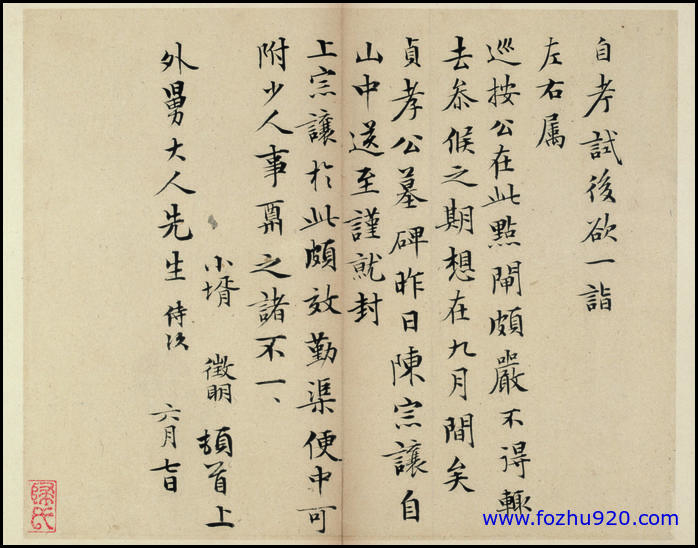 自考試後欲一詣
左右属
巡按公在此點閘頗嚴不得輙
去叅候之期想在九月間矣
貞孝公墓碑昨日陳宗讓自
山中送至謹就封
上宗讓於此頗效勤渠便中可
附少人事酬之諸不一、
小壻 徵明 頓首上
外舅大人先生 侍次
六月七日
歸氏
www.fozhu920.com